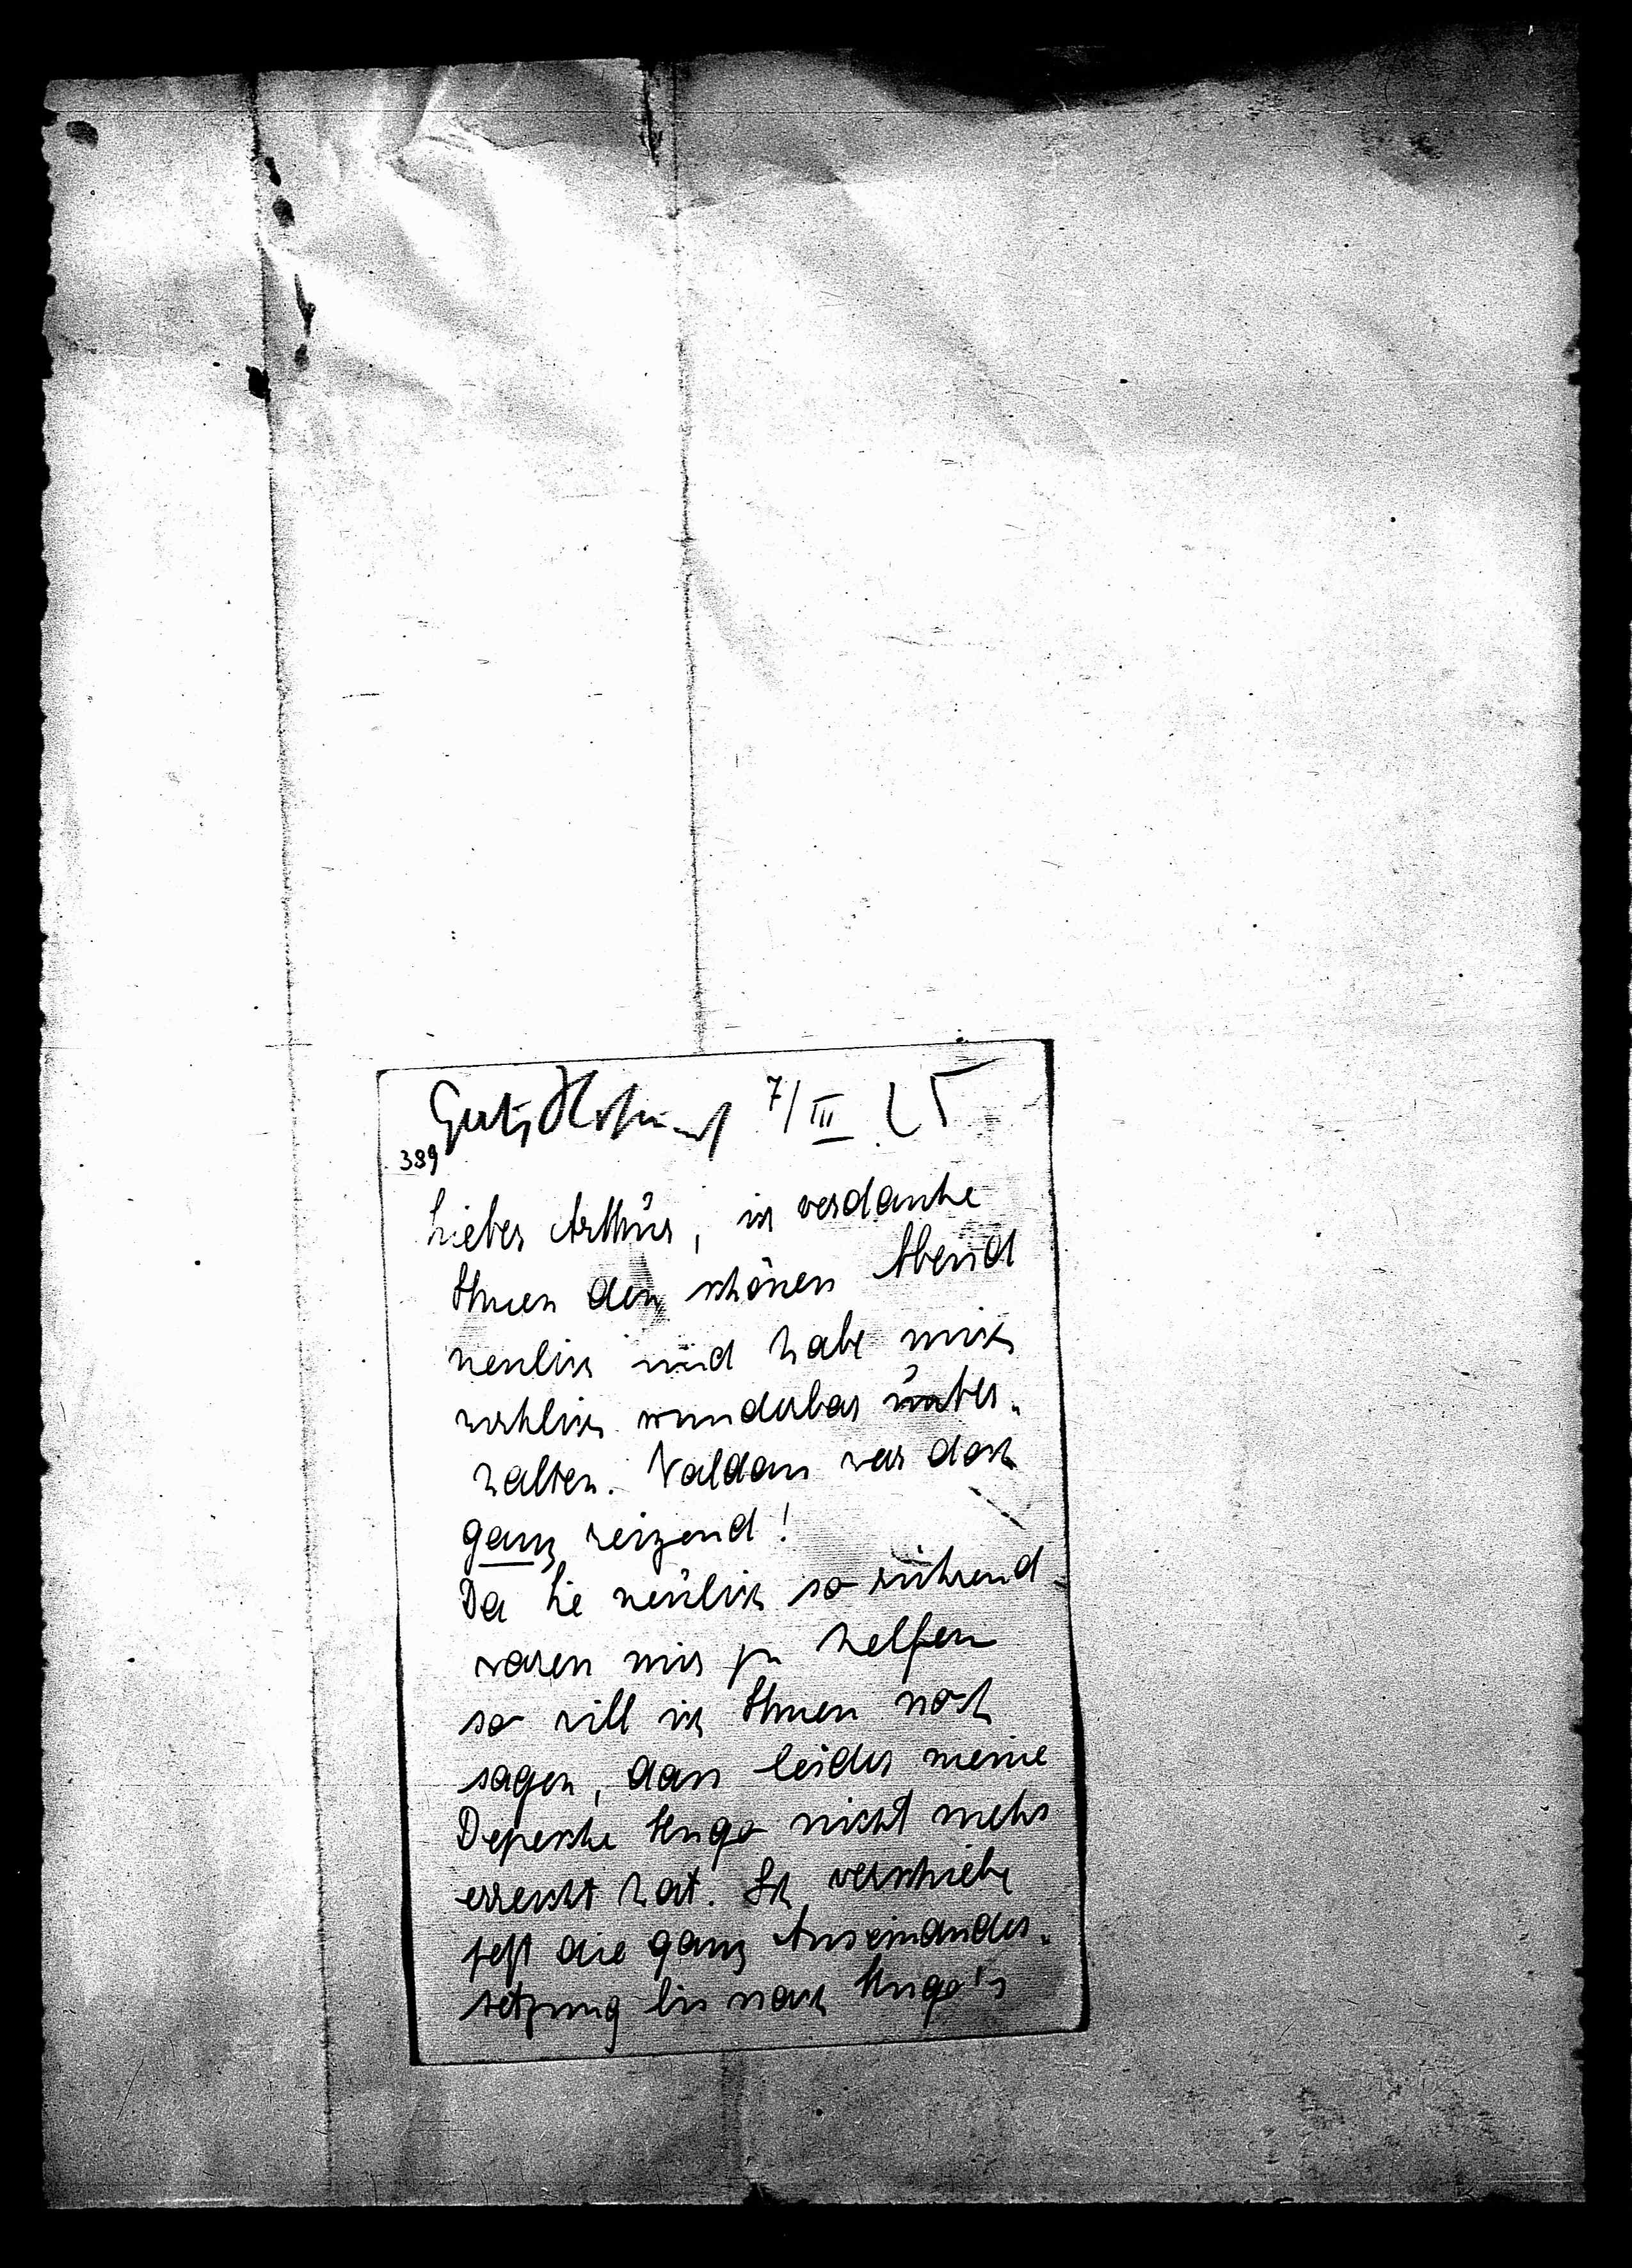 Gerty Hofmannst 7/III 25
389
Lieber Arthur, ich verdanke
Ihnen den schönen Abend
neulich und habe mich
wirklich wunderbar unter-
halten. Valdau war doch
ganz reizend!
Da Sie neulich so rührend
waren mir zu helfen
so will ich Ihnen noch
sagen, dass leider meine
Depesche Hugo nicht mehr
erreicht hat. Ich verschiebe
jetzt die ganz Auseinander-
setzung bis nach Hugo's